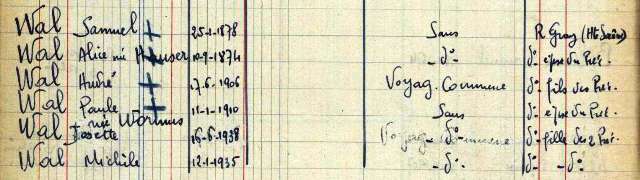 Wal Samuel + 25-1-1878 Sans R Gray (Hte Saône)
Wal Alice née Hauser 10-9-1874 - d° - d° épse du Pré.
Wal André + 17-6-1906 Voyag. Commerce d° fils des Pré.
Wal Paule + 11-1-1910 Sans d° épse du Pré.
née Wormus
Wal Josette 16-6-1938 - d° - d° fille des 2 Pré.
Wal Michèle 12-1-1935 - d° - d° - d°